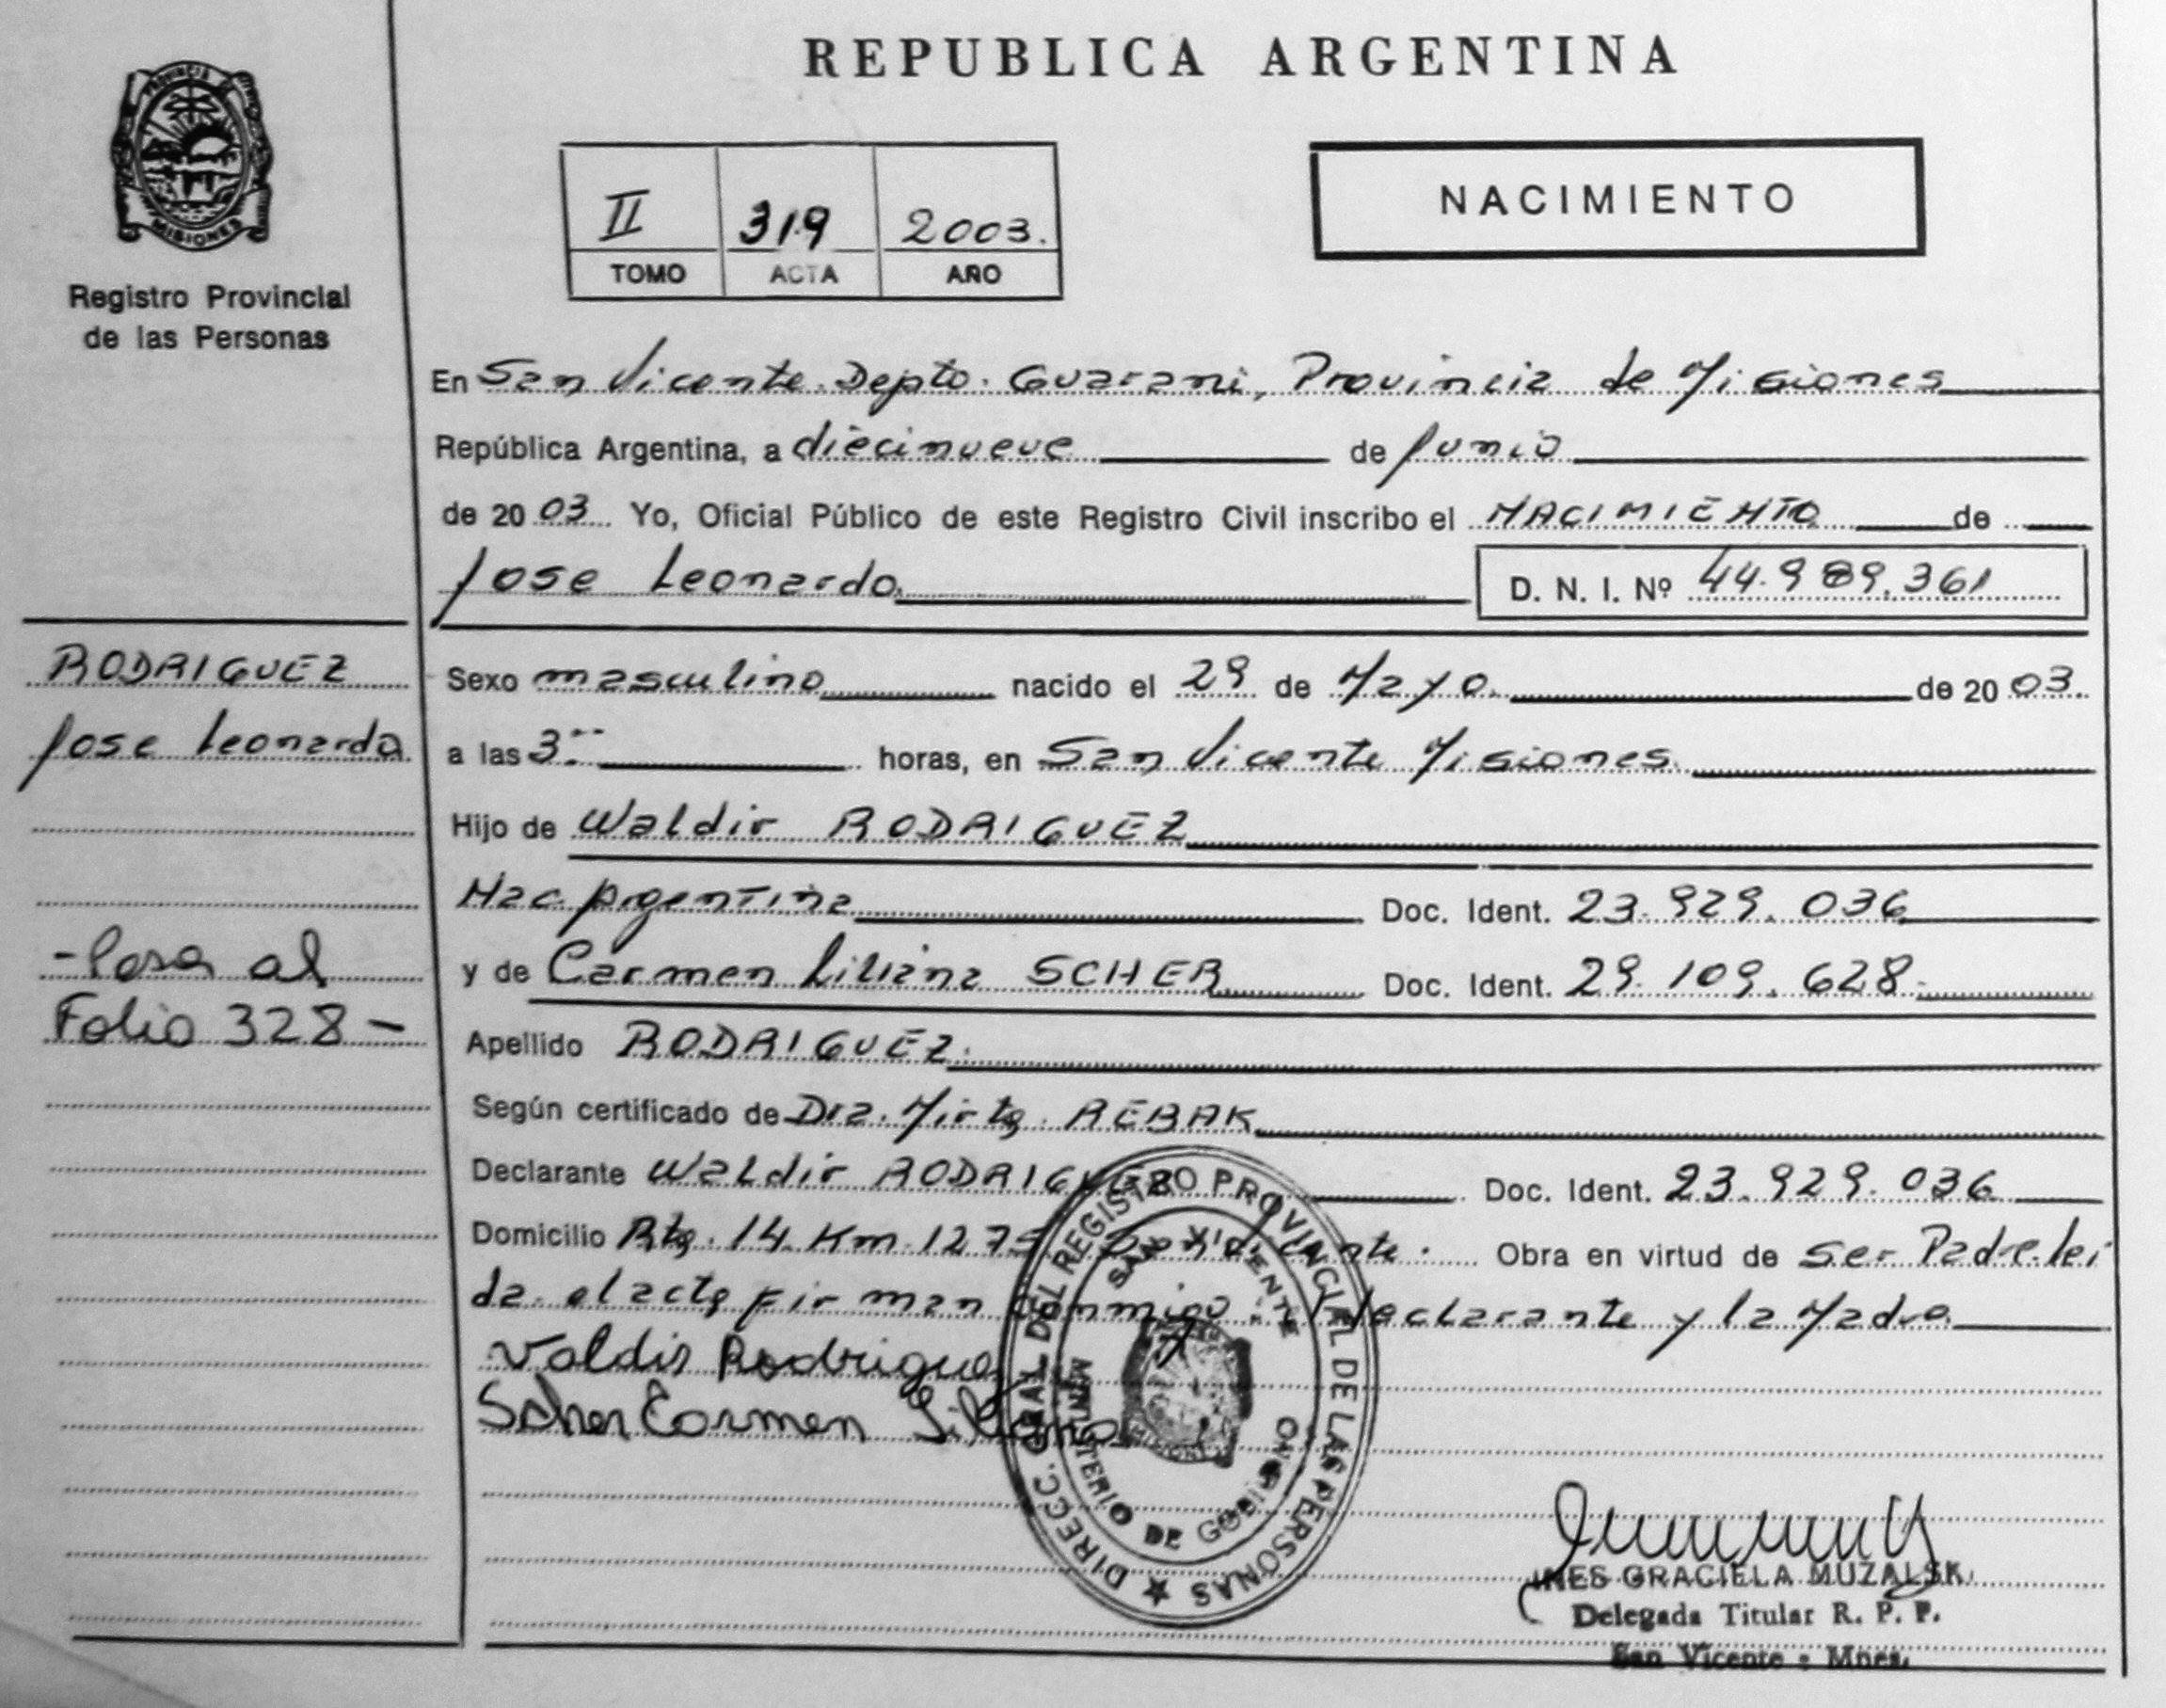 REPUBLICA ARGENTINA
MISIONES
Registro Provincial
de las Personas
II 319 2003.
TOMO ACTA AÑO
NACIMIENTO
En San Vicente. Depto. Guarani, Provincia de Misiones
República Argentina, a diecinueve de Junio
de 20 03 Yo, Oficial Público de este Registro Civil inscribo el NACIMIENTO de
Jose Leonardo D. N. I. Nº 44.989.361
RODRIGUEZ
Jose Leonardo
-Pasa al
Folio 328-
Sexo masculino nacido el 29 de Mayo de 20 03.
a las 3 horas, en San Vicente Misiones.
Hijo de Waldir RODRIGUEZ
Nac. Argentina Doc. Ident. 23.929.036
y de Carmen Liliana SCHER Doc. Ident. 29.109.628-
Apellido RODRIGUEZ.
Según certificado de Dra. Mirta REBAK
Declarante Waldir RODRIGUEZ Doc. Ident. 23.929.036
Domicilio Rta. 14 Km Vicente. Obra en virtud de ser Padre.lei
da el acta firman conmigo declarante y la Madre
Valdir Rodrigue
Scher Carmen Liliana
DIRECC. GRAL. DEL REGISTRO PROVINCIAL DE LAS PERSONAS
SAN VICENTE
MINISTERIO DE GOBIERNO
INES GRACIELA MUZALSK
Delegada Titular R. P. P.
San Vicente - Mnes.